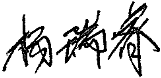 杨瑞春